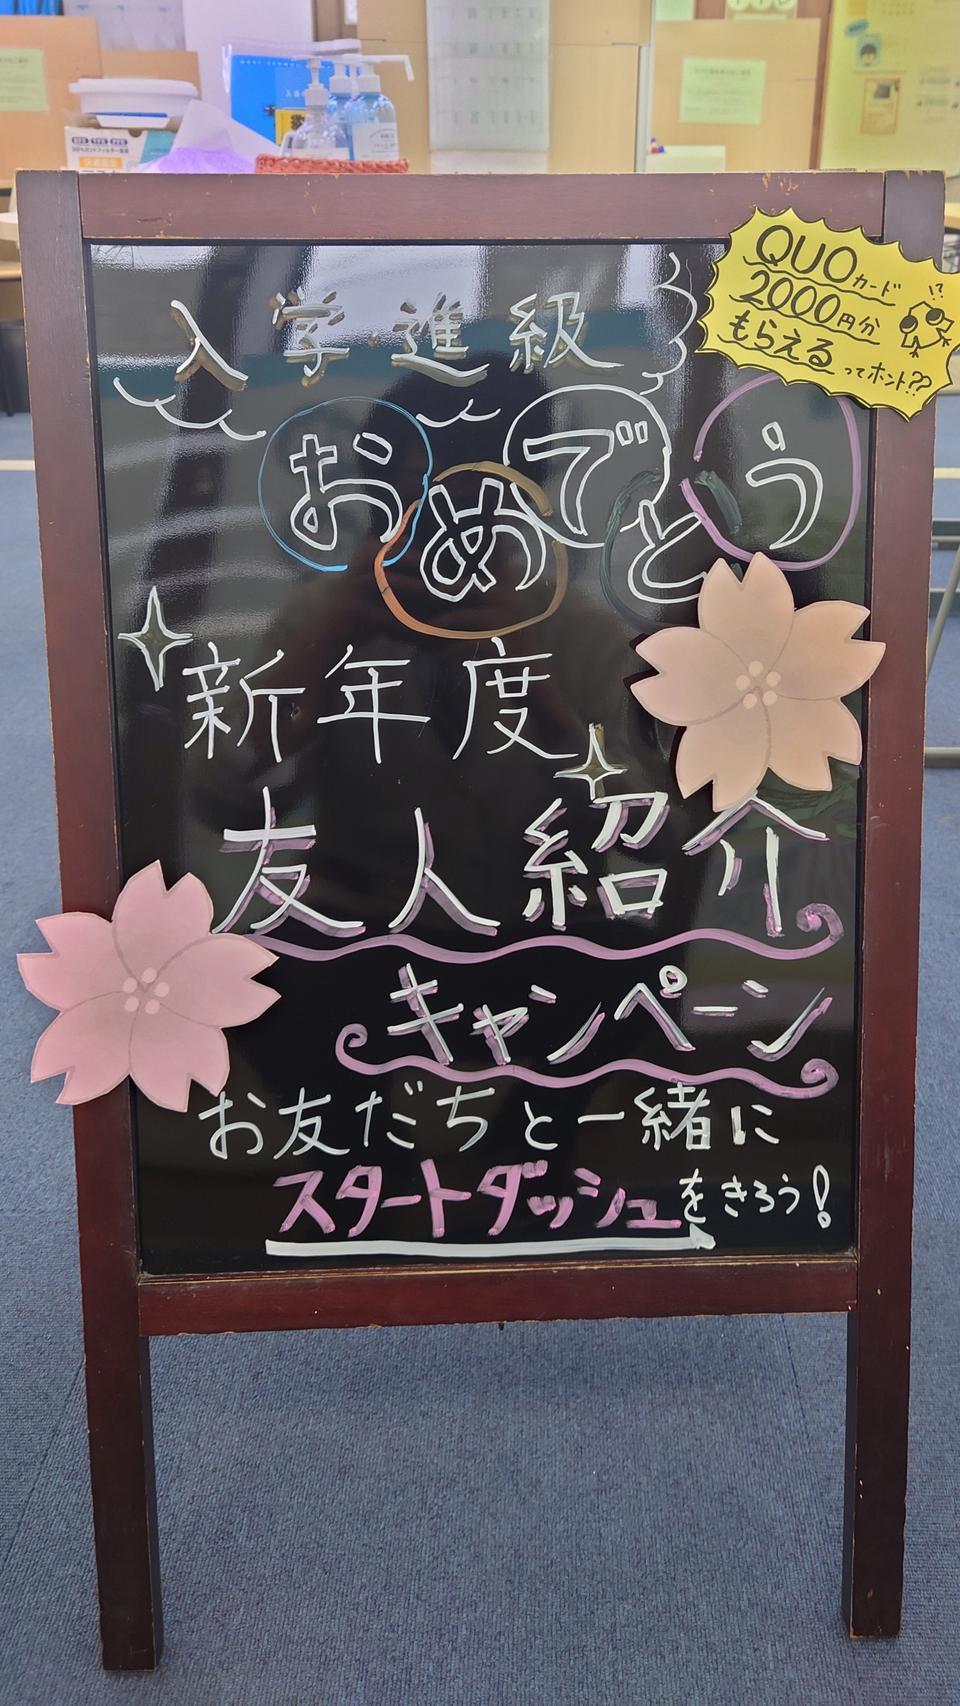 QUOカード
2000円分
もらえる
ってホント??
!?
入学進級
おめでとう
新年度
友人紹介
キャンペーン
お友だちと一緒に
スタートダッシュをきろう!